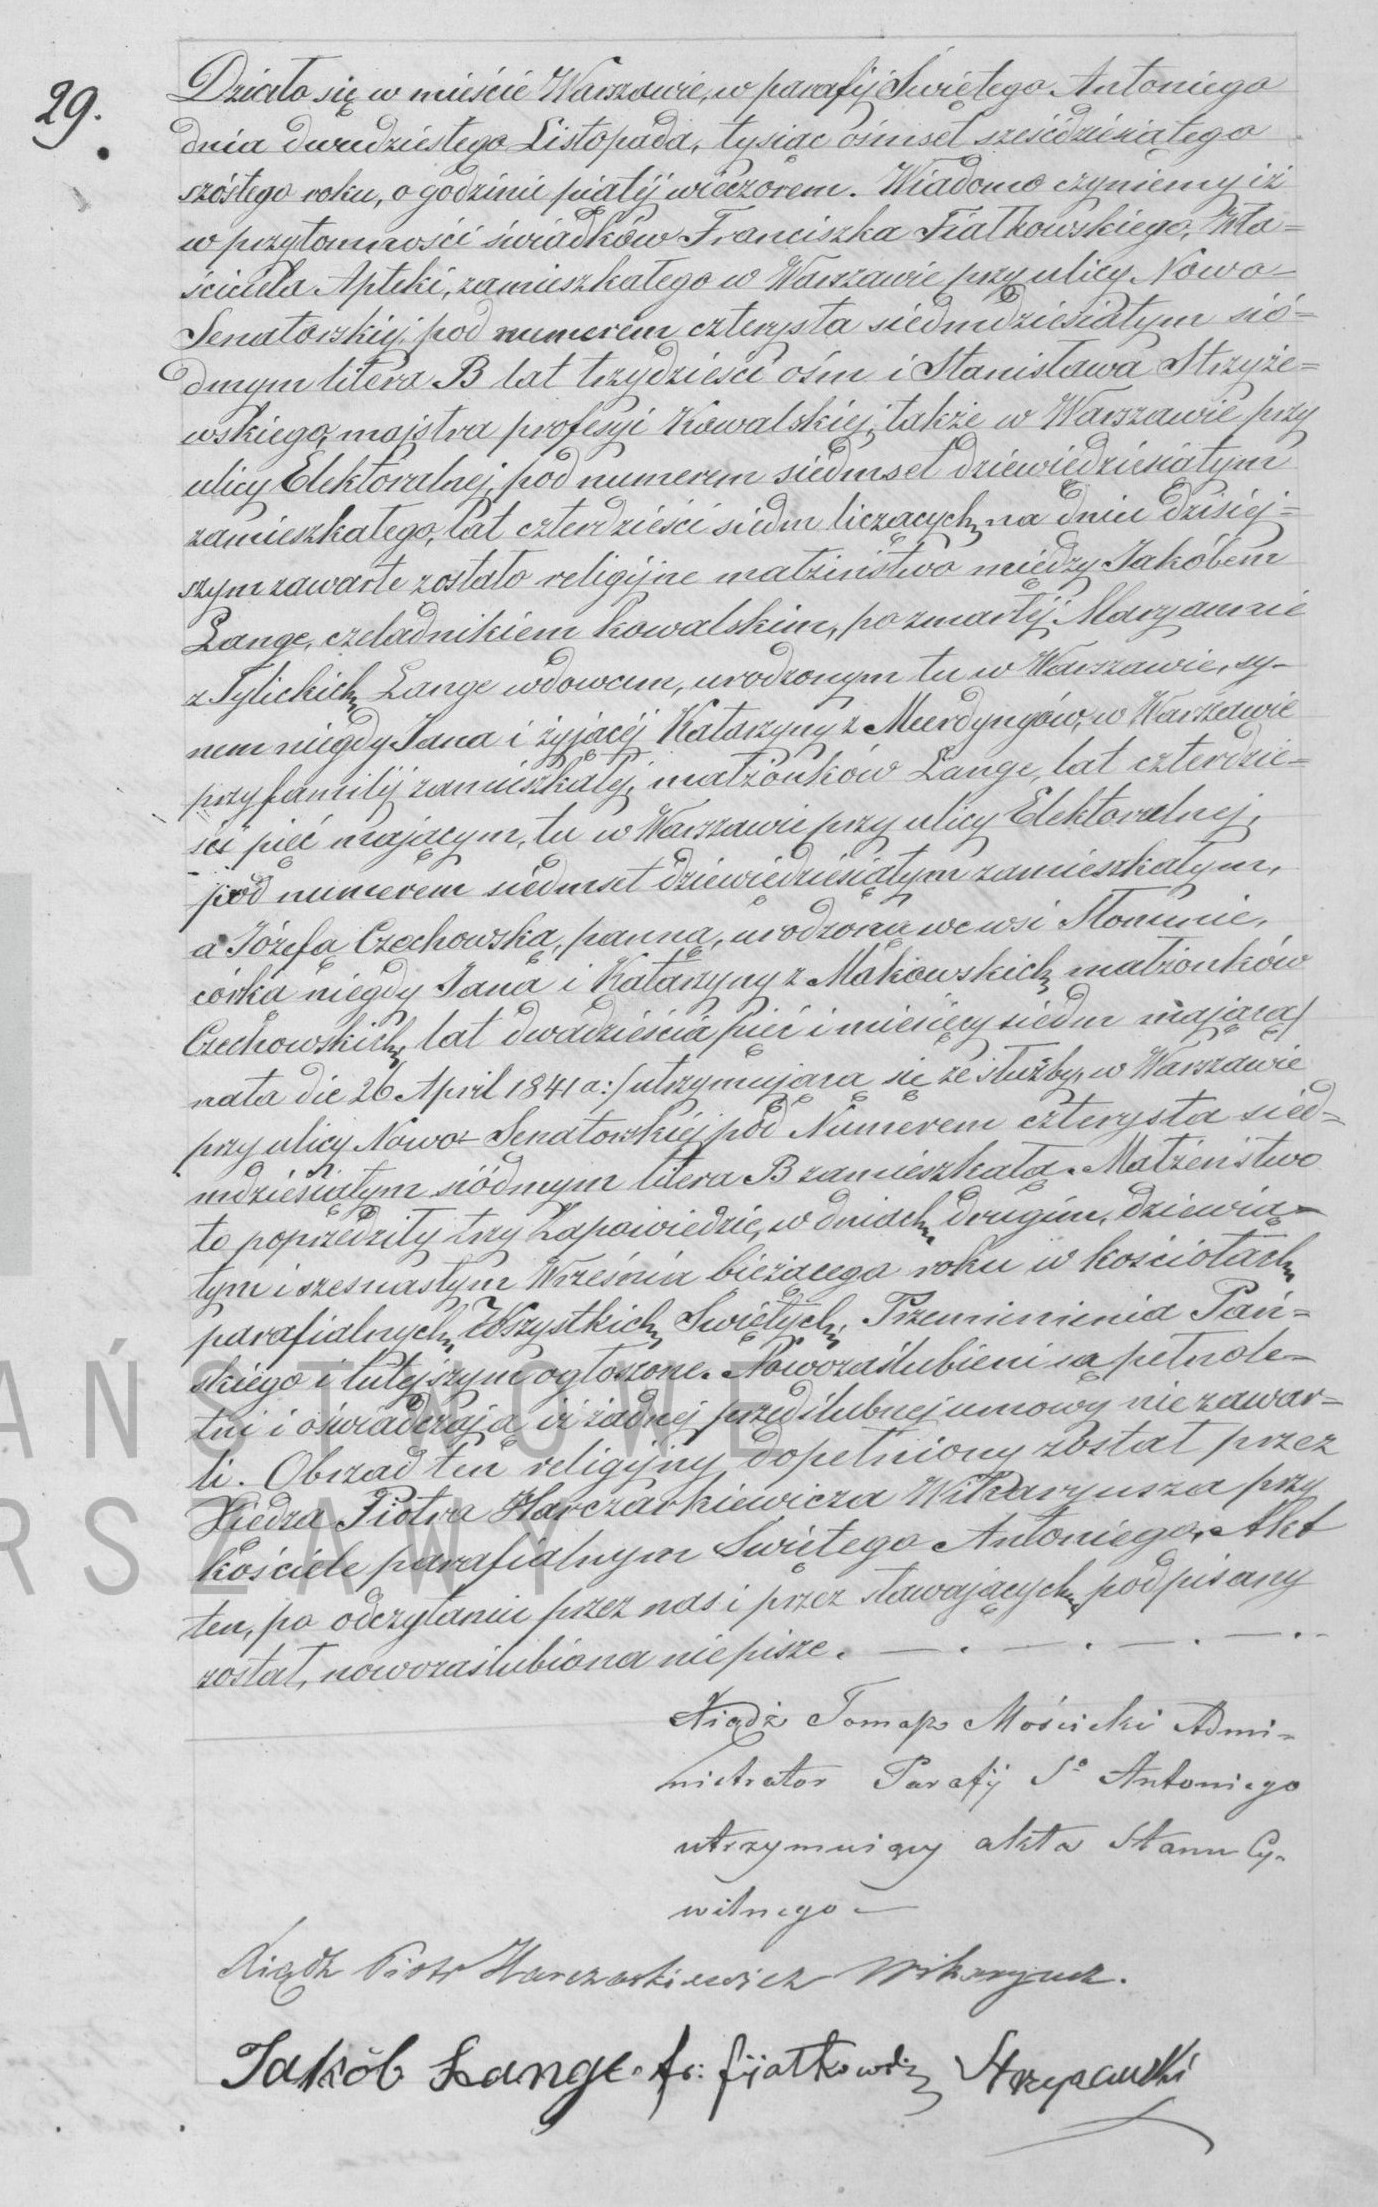 29.
Działo się w mieście Warszawie, w parafij Świętego Antoniego
dnia dwudziestego Listopada, tysiąc ośmset sześćdziesiątego
szóstego roku, o godzinie piątéj wieczorem. Wiadomo czyniemy iż
w przytomności świadków Franciszka Fiatkowskiego, Wła=
ściciela Apteki, zamieszkałego w Warszawie przy ulicy Nowo-
Senatorskiéj, pod numerem czterysta siedmdziesiątym sió=
dmym litera B lat trzydzieści ośm i Stanisława Strzyże=
wskiego, majstra profesyi Kowalskiéj, także w Warszawie przy
ulicy Elektoralnej, pod numerem siedmset dziewiędziesiątym
zamieszkałego, lat czterdzieści siedm liczących, na dniu dzisiej=
szym zawarte zostało religijne małżeństwo między Jakóbem
Lange, czeladnikiem kowalskim, po zmarłéj Maryannie
z Tylickich Lange wdowcem, urodzonym tu w Warszawie, sy-
nem niegdy Jana i żyjącéj Katarzyny z Murdyngów, w Warszawie
przy familij zamieszkałéj, małżonków Lange, lat czterdzie=
ści pięć mającym, tu w Warszawie przy ulicy Elektoralnej,
pod numerem siedmset dziewiędziesiątym zamieszkałym,
a Józefą Czechowską, panną, urodzoną we wsi Słominie,
córką niegdy Jana i Katarzyny z Makowskich małżonków
Czechowskich, lat dwadzieścia pięć i miesięcy siedm mającą/
nata die 26 April 1841 a:/ utrzymującą się ze służby, w Warszawie
przy ulicy Nowo-Senatorskiéj pod Numerem czterysta sied=
mdziesiątym siódmym litera B zamieszkałą. Małżeństwo
to poprzedziły trzy Zapowiedzie, w dniach drugim, dziewią=
tym i szesnastym Września bieżącego roku w kościołach
parafialnych, Wszystkich Świętych, Przemienienia Pań=
skiego i tutejszym ogłoszone. Nowozaślubieni są pełnole=
tni i oświadczają iż żadnej przedślubnej umowy nie zawar=
li. Obrząd ten religijny dopełniony został przez
Xiędza Piotra Harczarkiewicza Wikaryusza przy
kościele parafialnym Świętego Antoniego. Akt
ten, po odczytaniu przez nas i przez stawających podpisany
został, nowozaślubiona nie pisze. — . — . — . — . -
Xiądz Tomasz Mościcki Admi-
nistrator Parafij Sº Antoniego
utrzymuiący akta Stanu Cy-
wilnego —
Xiądz Piotr Harczarkiewicz Wikaryusz.
Jakób Lange. fr: fijatkowski Strzyżewski